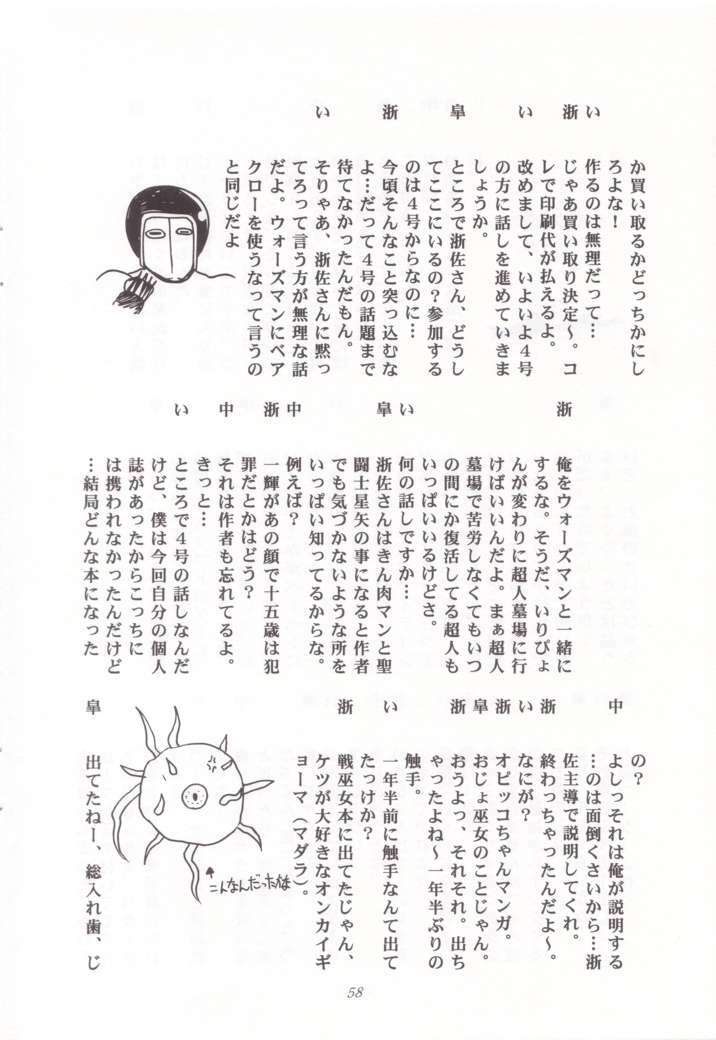 か買い取るかどっちかにし
ろよな!
い 作るのは無理だって…
浙 じゃあ買い取り決定〜。コ
レで印刷代が払えるよ。
い 改めまして、いよいよ4号
の方に話しを進めていきま
しょうか。
皐 ところで浙佐さん、どうし
てここにいるの?参加する
のは4号からなのに…
浙 今頃そんなこと突っ込むな
よ…だって4号の話題まで
待てなかったんだもん。
い そりゃあ、浙佐さんに黙っ
てろって言う方が無理な話
だよ。ウォーズマンにベア
クローを使うなって言うの
と同じだよ
浙 俺をウォーズマンと一緒に
するな。そうだ、いりぴょ
んが変わりに超人墓場に行
けばいいんだよ。まぁ超人
墓場で苦労しなくてもいつ
の間にか復活してる超人も
いっぱいいるけどさ。
い 何の話しですか…
皐 浙佐さんはきん肉マンと聖
闘士星矢の事になると作者
でも気づかないような所を
いっぱい知ってるからな。
中 例えば?
浙 一輝があの顔で十五歳は犯
罪だとかはどう?
中 それは作者も忘れてるよ。
きっと…
い ところで4号の話しなんだ
けど、僕は今回自分の個人
誌があったからこっちに
は携われなかったんだけど
…結局どんな本になった
の?
中 よしっそれは俺が説明する
…のは面倒くさいから…浙
佐主導で説明してくれ。
浙 終わっちゃったんだよ〜。
い なにが?
浙 オビッコちゃんマンガ。
皐 おじょ巫女のことじゃん。
浙 おうよっ、それそれ。出ち
ゃったよね〜一年半ぶりの
触手。
い 一年半前に触手なんて出て
たっけか?
浙 戦巫女本に出てたじゃん、
ケツが大好きなオンカイギ
ョーマ(マダラ)。
こんなんだったかな
皐 出てたねー、総入れ歯、じ
58